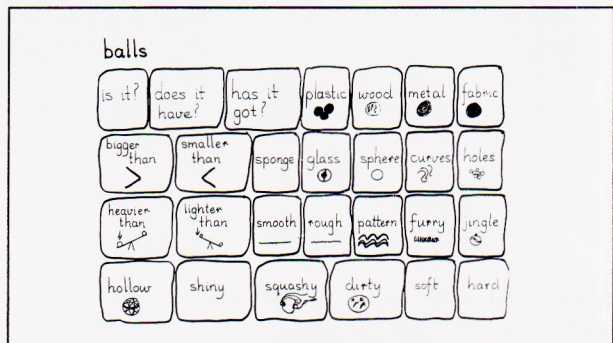 balls
is it? does it have? has it got? plastic wood metal fabric
bigger than smaller than sponge glass sphere curves holes
> <
heavier than lighter than smooth rough pattern furry jingle
hollow shiny squashy dirty soft hard